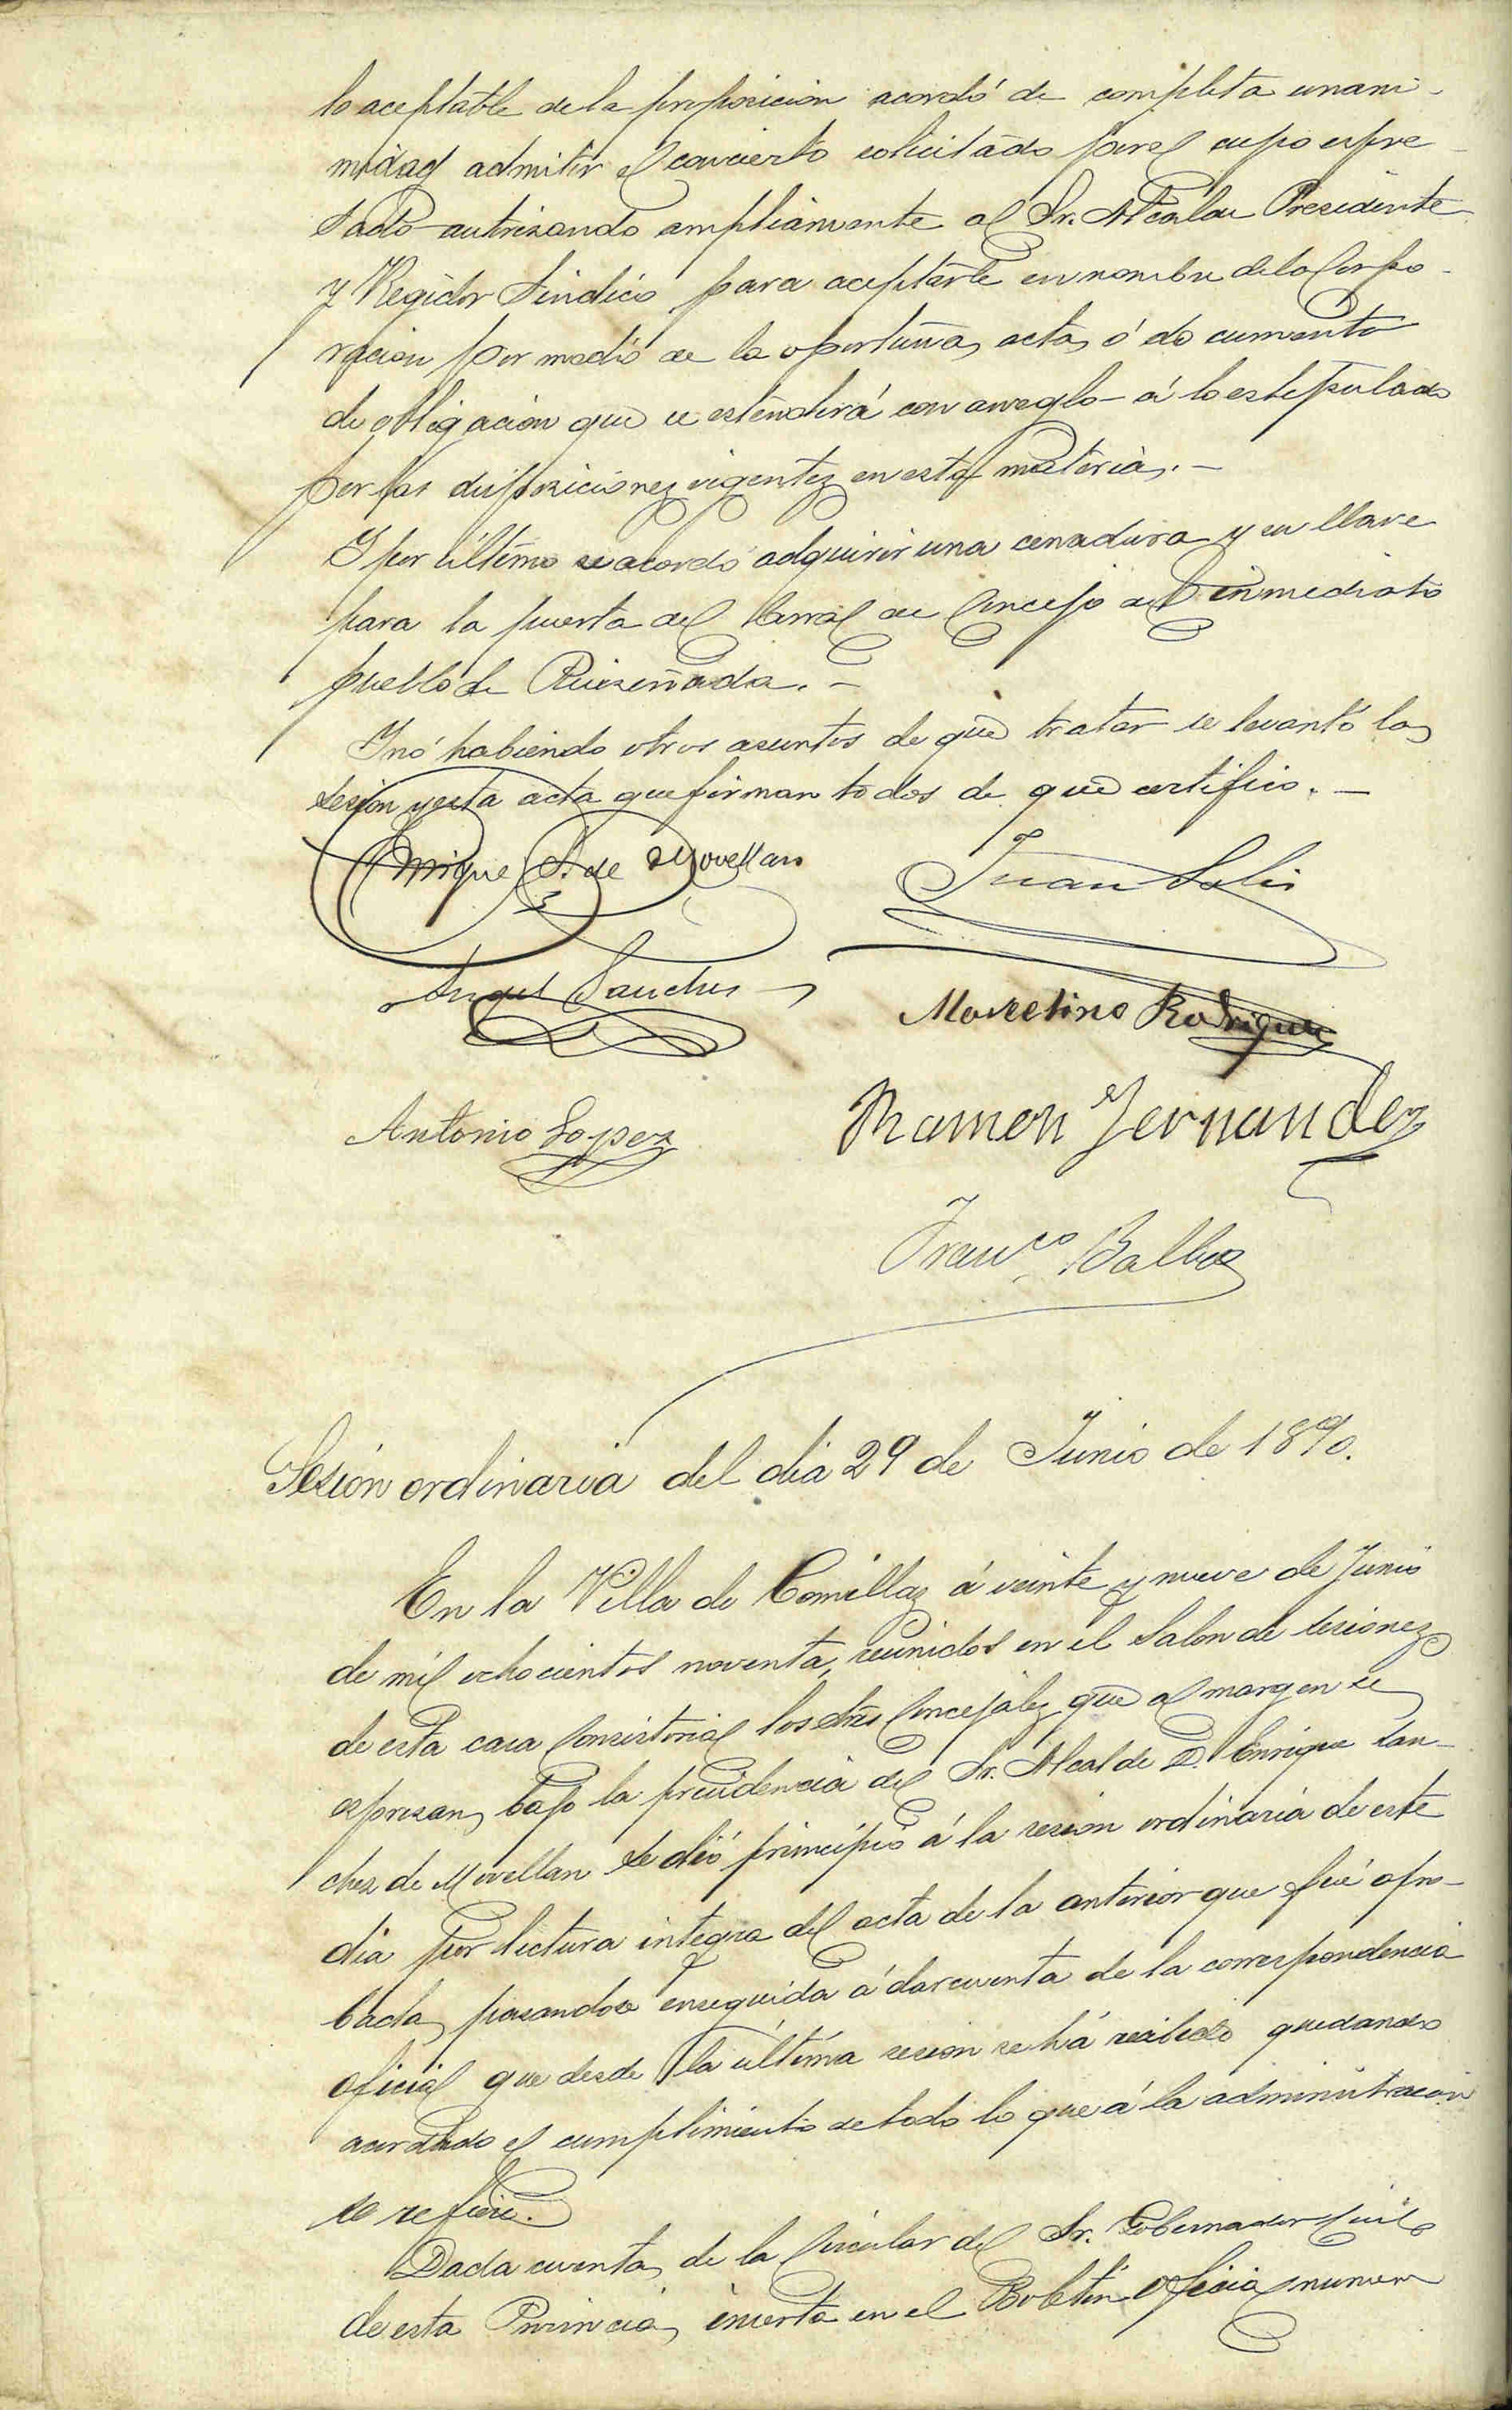 lo aceptable de la proposicion acordó de completa unani-
midad admitir el concierto solicitado por el cupo espre-
sado autorizando ampliamente al Sr. Alcalde Presidente
y Regidor Sindico para aceptarle en nombre de la Corpo-
racion por medio de la oportuna acta ó documento
de obligacion que se estenderá con arreglo á lo estipulado
por las disposiciones vigentes en esta materia.-
Y por último se acordó adquirir una cerradura y su llave
para la puerta del Corral de Concejo del inmediato
pueblo de Ruiseñada.-
Y no habiendo otros asuntos de que tratar se levantó la
sesion y esta acta que firman todos de que certifico.-
Enrique S. de Movellan
Juan Solis
Angel Sanchez
Marcelino Rodriguez
Antonio Lopez
Ramon Fernandez
Franco Balboa
Sesión ordinaria del dia 29 de Junio de 1890.
En la Villa de Comillas á veinte y nueve de Junio
de mil ochocientos noventa, reunidos en el Salon de sesiones
de esta casa Consistorial los Sres Concejales que al margen se
espresan, bajo la presidencia del Sr. Alcalde D. Enrique San-
chez de Movellan se dió principio á la sesion ordinaria de este
dia por lectura integra del acta de la anterior que fué apro-
bada, pasandose enseguida á dar cuenta de la correspondencia
oficial que desde la última sesion se há recibido quedando
acordado el cumplimiento de todo lo que á la administracion
se refiere.
Dada cuenta de la Circular del Sr. Gobernador Civil
de esta Provincia, inserta en el Boletin Oficial numero